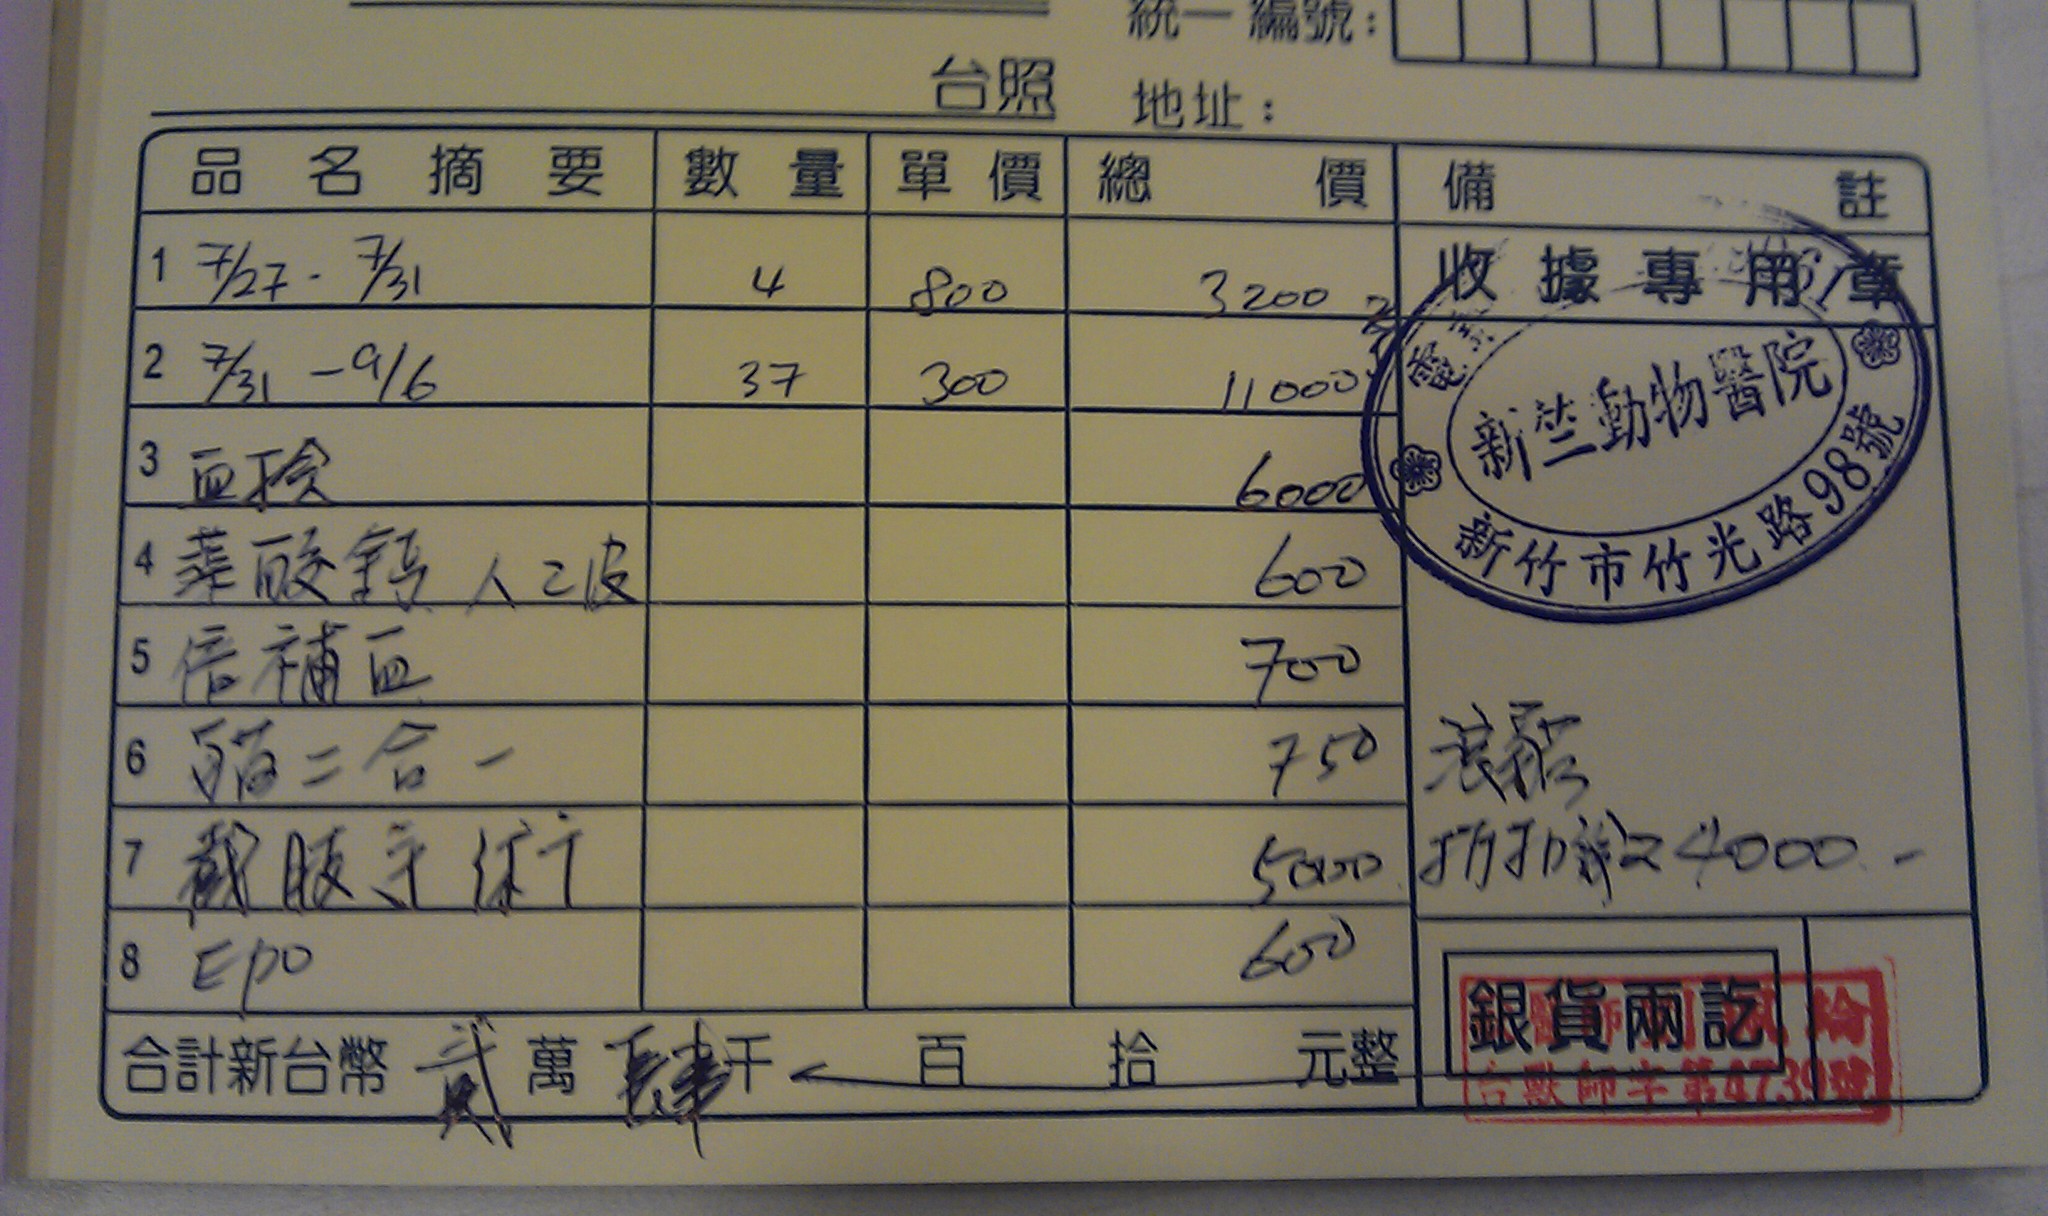 統一編號：
台照 地址：
品名摘要 數量 單價 總價 備註
收據專用章
1 7/27 - 7/31 4 800 3200
2 7/31 - 9/6 37 300 11000
電
新竺動物醫院
新竹市竹光路98號
3 血檢 6000
4 酸鈣 人乙皮 600
5 倍補血 700
6 貓二合一 750
7 截肢手術 5000
8 Epo 600
折扣 4000.-
合計新台幣 貳萬肆千 百 拾 元整
銀貨兩訖
台獸師字第4739號